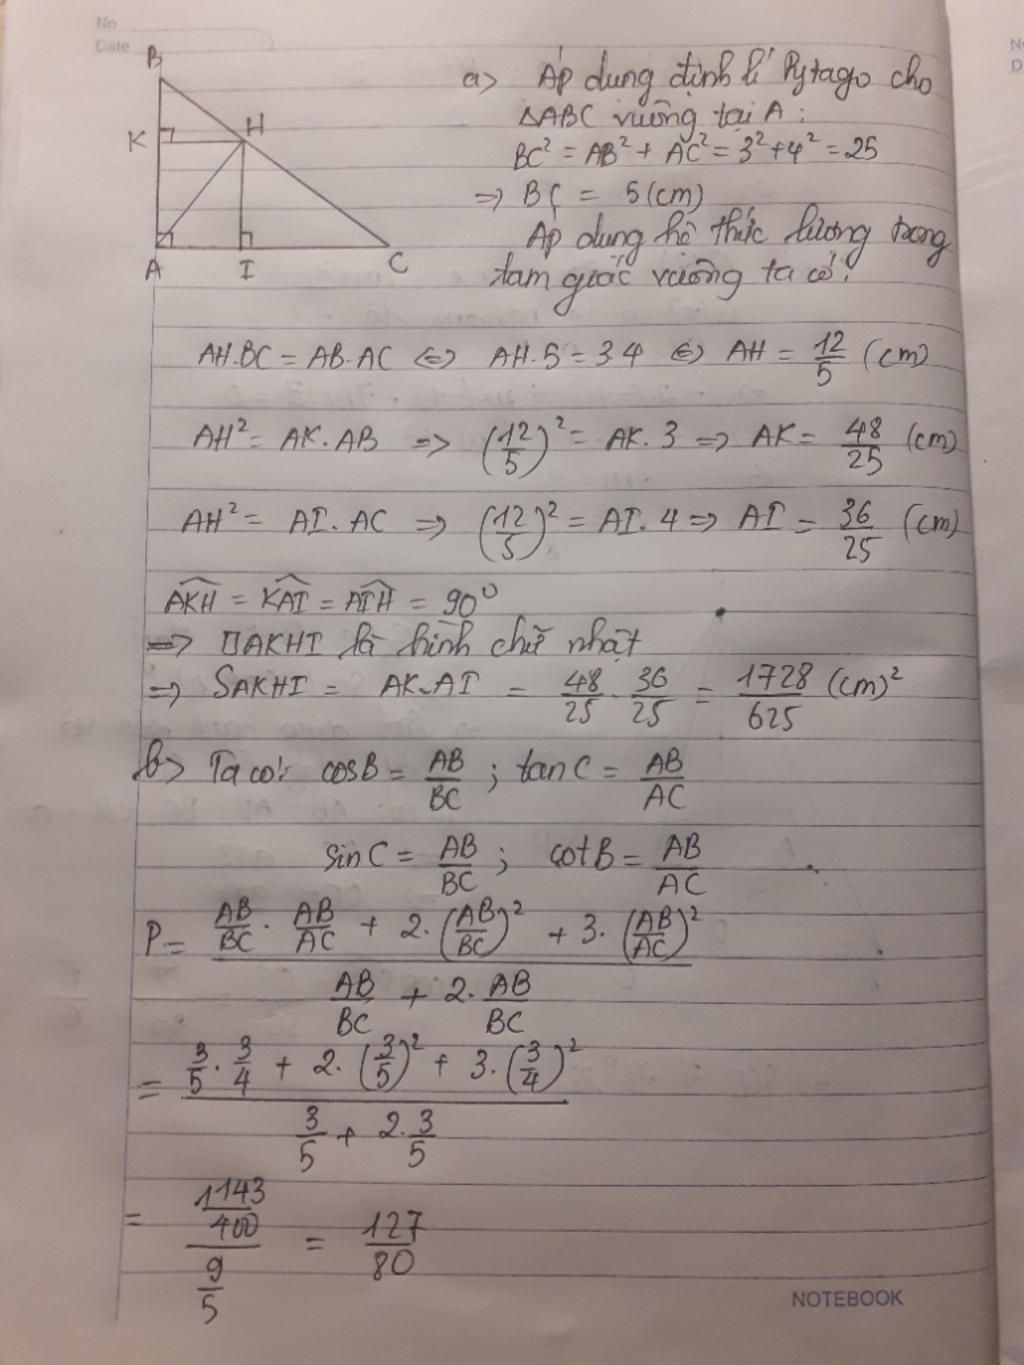 No
Date
B
K
H
A
I
C
a> Áp dụng định lí Pytago cho
△ABC vuông tại A :
BC² = AB² + AC² = 3² + 4² = 25
=> BC = 5 (cm)
Áp dụng hệ thức lượng trong
tam giác vuông ta có:
AH.BC = AB.AC <=> AH.5 = 3.4 <=> AH = 12/5 (cm)
AH² = AK.AB => (12/5)² = AK.3 => AK = 48/25 (cm)
AH² = AI.AC => (12/5)² = AI.4 => AI = 36/25 (cm)
AKH = KAI = AIH = 90°
=> □AKHI là hình chữ nhật
=> SAKHI = AK.AI = 48/25 . 36/25 = 1728/625 (cm)²
b> Ta có: cosB = AB/BC ; tanC = AB/AC
sinC = AB/BC ; cotB = AB/AC
P = (AB/BC . AB/AC + 2.(AB/BC)² + 3.(AB/AC)²) / (AB/BC + 2.AB/BC)
= (3/5 . 3/4 + 2.(3/5)² + 3.(3/4)²) / (3/5 + 2.3/5)
= (1143/400) / (9/5) = 127/80
NOTEBOOK